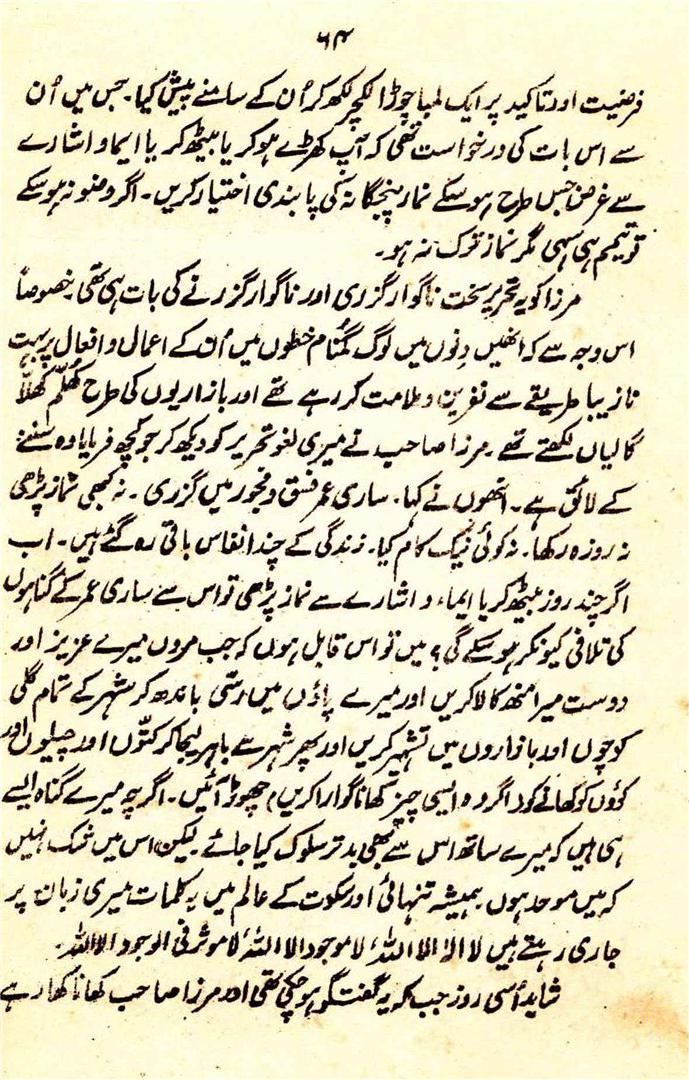 ۶۴
فرضیت اور تاکید پر ایک لمبا چوڑا لکچر لکھ کر اُن کے سامنے پیش کیا۔ جس میں اُن
سے اس بات کی درخواست تھی کہ آپ کھڑے ہو کر یا بیٹھ کر یا ایما و اشارے
سے غرض جس طرح ہو سکے نماز پنجگانہ کی پابندی اختیار کریں۔ اگر وضو نہ ہو سکے
تو تیمم ہی سہی مگر نماز ترک نہ ہو۔
مرزا کو یہ تحریر سخت ناگوار گزری اور ناگوار گزرنے کی بات ہی تھی۔ خصوصاً
اس وجہ سے کہ انھیں دِنوں میں لوگ گمنام خطوں میں اُن کے اعمال و افعال پر بہت
نازیبا طریقے سے نفرین و ملامت کر رہے تھے اور بازاریوں کی طرح کھُلّم کھُلّا
گالیاں لکھتے تھے۔ مرزا صاحب نے میری لغو تحریر کو دیکھ کر جو کچھ فرمایا وہ سننے
کے لائق ہے۔ انھوں نے کہا۔ ساری عمر فسق و فجور میں گزری۔ نہ کبھی نماز پڑھی
نہ روزہ رکھا۔ نہ کوئی نیک کام کیا۔ زندگی کے چند انفاس باقی رہ گئے ہیں۔ اب
اگر چند روز بیٹھ کر یا ایماء و اشارے سے نماز پڑھی تو اس سے ساری عمر کے گناہوں
کی تلافی کیونکر ہو سکے گی؟ میں تو اس قابل ہوں کہ جب مروں میرے عزیز اور
دوست میرا منھ کالا کریں اور میرے پاؤں میں رسّی باندھ کر شہر کے تمام گلی
کوچوں اور بازاروں میں تشہیر کریں اور پھر شہر سے باہر لیجا کر کتّوں اور چیلوں اور
کوّں کو کھانے کو (اگر وہ ایسی چیز کھانا گوارا کریں) چھوڑ آئیں۔ اگرچہ میرے گناہ ایسے
ہی ہیں کہ میرے ساتھ اس سے بھی بدتر سلوک کیا جائے لیکن اس میں شک نہیں
کہ میں موحد ہوں۔ ہمیشہ تنہائی اور سکوت کے عالم میں یہ کلمات میری زبان پر
جاری رہتے ہیں لا الٰہ الا اللہ، لا موجود الا اللہ، لا موثر فی الوجود الا اللہ۔
شاید اُسی روز جب کہ یہ گفتگو ہو چکی تھی اور مرزا صاحب کھانا کھا رہے